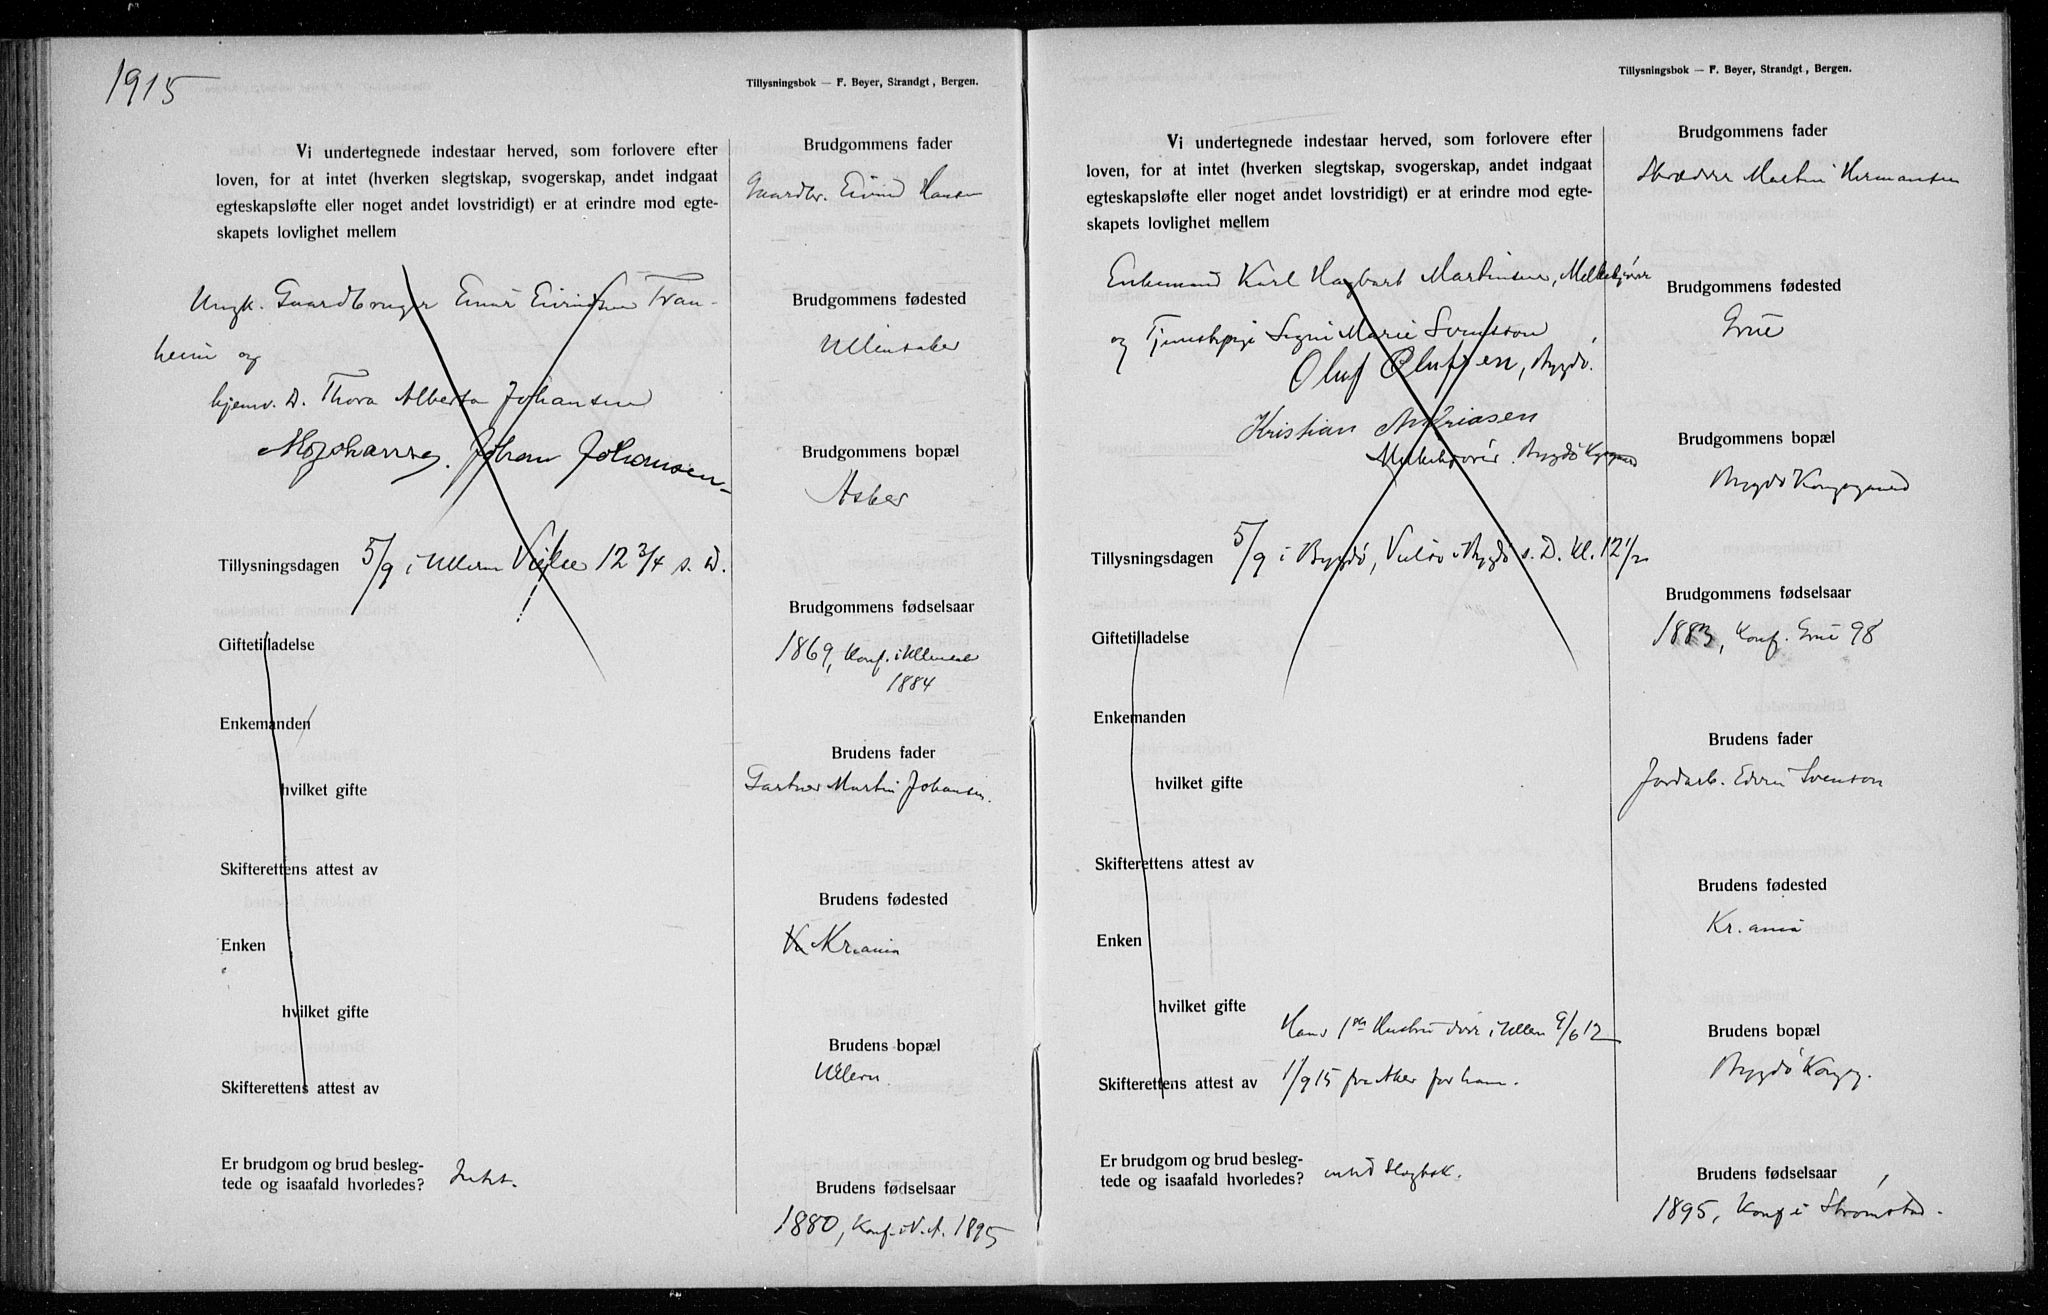 1915
Tillysningsbok — F. Beyer, Strandgt, Bergen.
Vi undertegnede indestaar herved, som forlovere efter
loven, for at intet (hverken slegtskap, svogerskap, andet indgaat
egteskapsløfte eller noget andet lovstridigt) er at erindre mod egte-
skapets lovlighet mellem
Ungk. Gaardbruger Einar Eivindsen Tran-
heim og
hjemv. D. Thora Alberta Johansen
Johan Johansen
Tillysningsdagen 5/9 i Ullern Vielse 12 3/4 s. D.
Giftetilladelse
Enkemanden
hvilket gifte
Skifterettens attest av
Enken
hvilket gifte
Skifterettens attest av
Er brudgom og brud besleg-
tede og isaafald hvorledes? Intet.
Brudgommens fader
Gaardbr. Eivind Hansen
Brudgommens fødested
Ullensaker
Brudgommens bopæl
Asker
Brudgommens fødselsaar
1869, Konf. i Ullensak
1884
Brudens fader
Gartner Martin Johansen.
Brudens fødested
Kr.ania
Brudens bopæl
Ullern
Brudens fødselsaar
1880, Konf. i V. A. 1895
Tillysningsbok — F. Beyer, Strandgt, Bergen.
Vi undertegnede indestaar herved, som forlovere efter
loven, for at intet (hverken slegtskap, svogerskap, andet indgaat
egteskapsløfte eller noget andet lovstridigt) er at erindre mod egte-
skapets lovlighet mellem
Enkemand Karl Hagbart Martinsen, Melkekjører
og Tjenestepige Signe Marie Svensson
Oluf Olufsen, Bygdø.
Kristian Andriasen
Melkekjører. Bygdø Kgsgaard
Tillysningsdagen 5/9 i Bygdø, Vielse i Bygdø s. D. Kl. 12 1/2
Giftetilladelse
Enkemanden
hvilket gifte
Skifterettens attest av
Enken
hvilket gifte
Hans 1ste Hustru døde i Ullern 9/6 12
Skifterettens attest av 1/9 15 fra Aker for ham.
Er brudgom og brud besleg-
tede og isaafald hvorledes?
Brudgommens fader
Skrædder Martin Hermansen
Brudgommens fødested
Grue
Brudgommens bopæl
Bygdø Kongsgaard
Brudgommens fødselsaar
1883, Konf. Grue 98
Brudens fader
Jordarb. Svenson
Brudens fødested
Kr.ania
Brudens bopæl
Bygdø Kongsg.
Brudens fødselsaar
1895, Konf i Strømstad.